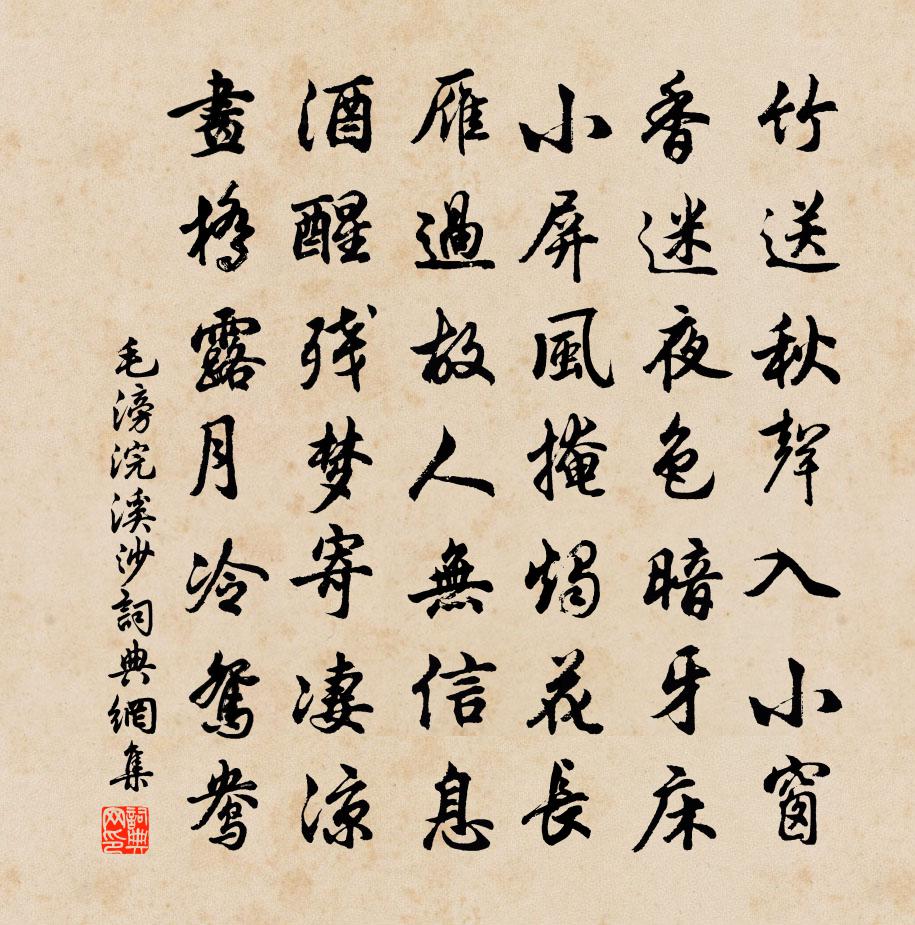 竹送秋聲入小窗
香迷夜色暗牙床
小屏風掩燭花長
雁過故人無信息
酒醒残梦寄凄涼
畫橋露月冷鴛鴦
毛滂浣溪沙詞典網集
詞典网印